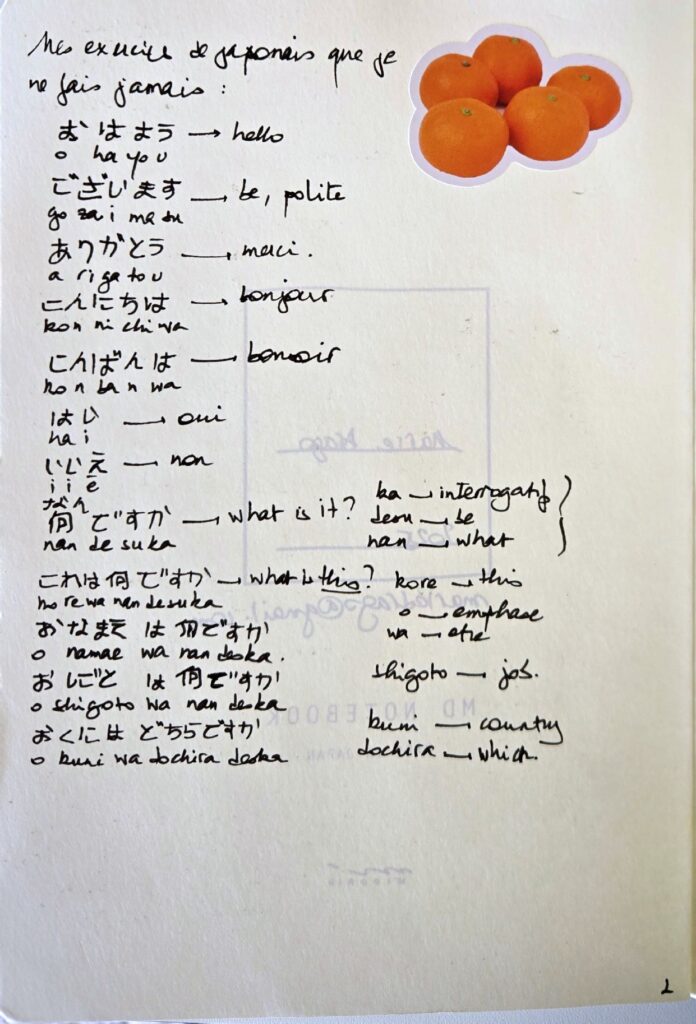 Mes exercice de japonais que je
ne fais jamais :
おはよう → hello
o ha yo u
ございます → be, polite
go za i ma su
ありがとう → merci.
a ri ga to u
こんにちは → bonjour
kon ni chi wa
こんばんは → bonsoir
ko n ba n wa
はい → oui
ha i
いいえ → non
i i e
なん
何ですか → what is it?
nan de su ka
ka → interrogatif
desu → be
nan → what
これは何ですか → what is this?
ko re wa nan desuka
kore → this
o → emphase
おなまえ は 何ですか
o namae wa nan deska.
wa → etre
おしごと は 何ですか
o shigoto wa nan deska
shigoto → job.
おくには どちらですか
o kuni wa dochira deska
kuni → country
dochira → which.
MD NOTEBOOK